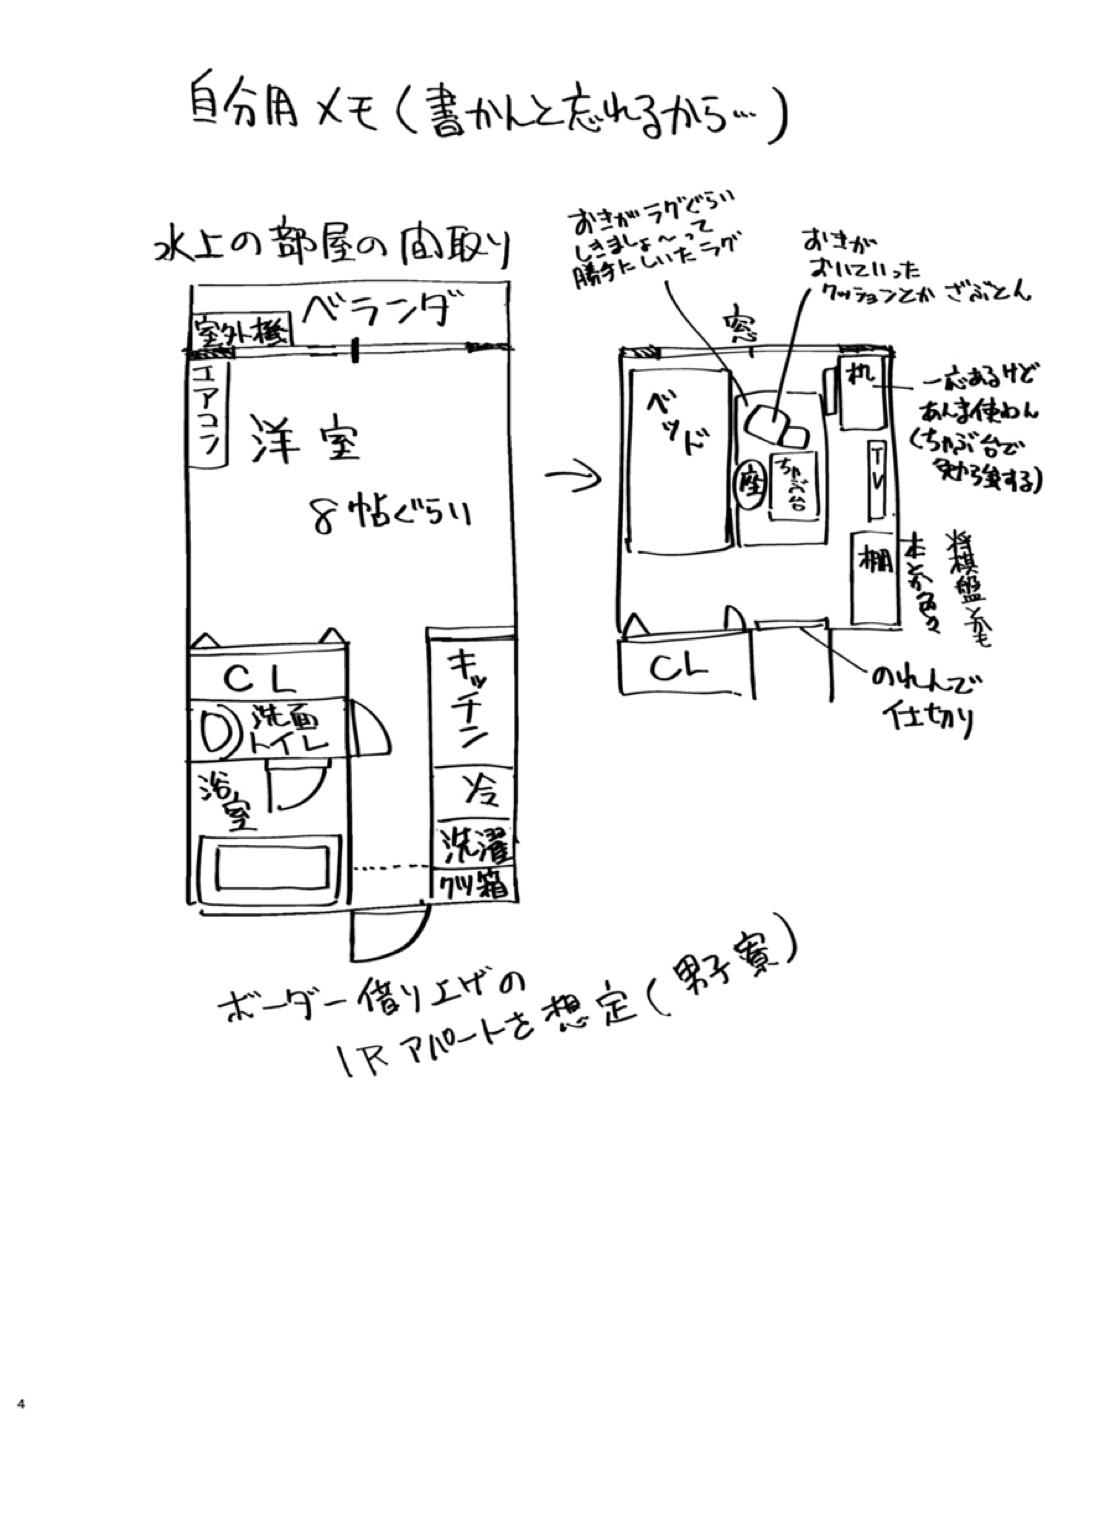 自分用メモ(書かんと忘れるから…)
水上の部屋の間取り
ベランダ
室外機
エアコン
洋室
8帖ぐらい
CL
洗面
トイレ
浴室
キッチン
冷
洗濯
クツ箱
ボーダー借り上げの
1Rアパートを想定(男子寮)
おきがラグぐらい
しきましょ〜って
勝手にしいたラグ
おきが
おいていった
クッションとかざぶとん
窓
ベッド
机
座
ちゃぶ台
TV
棚
CL
一応あるけど
あんま使わん
(ちゃぶ台で
勉強する)
将棋盤とかも
本とか色々
のれんで
仕切り
4